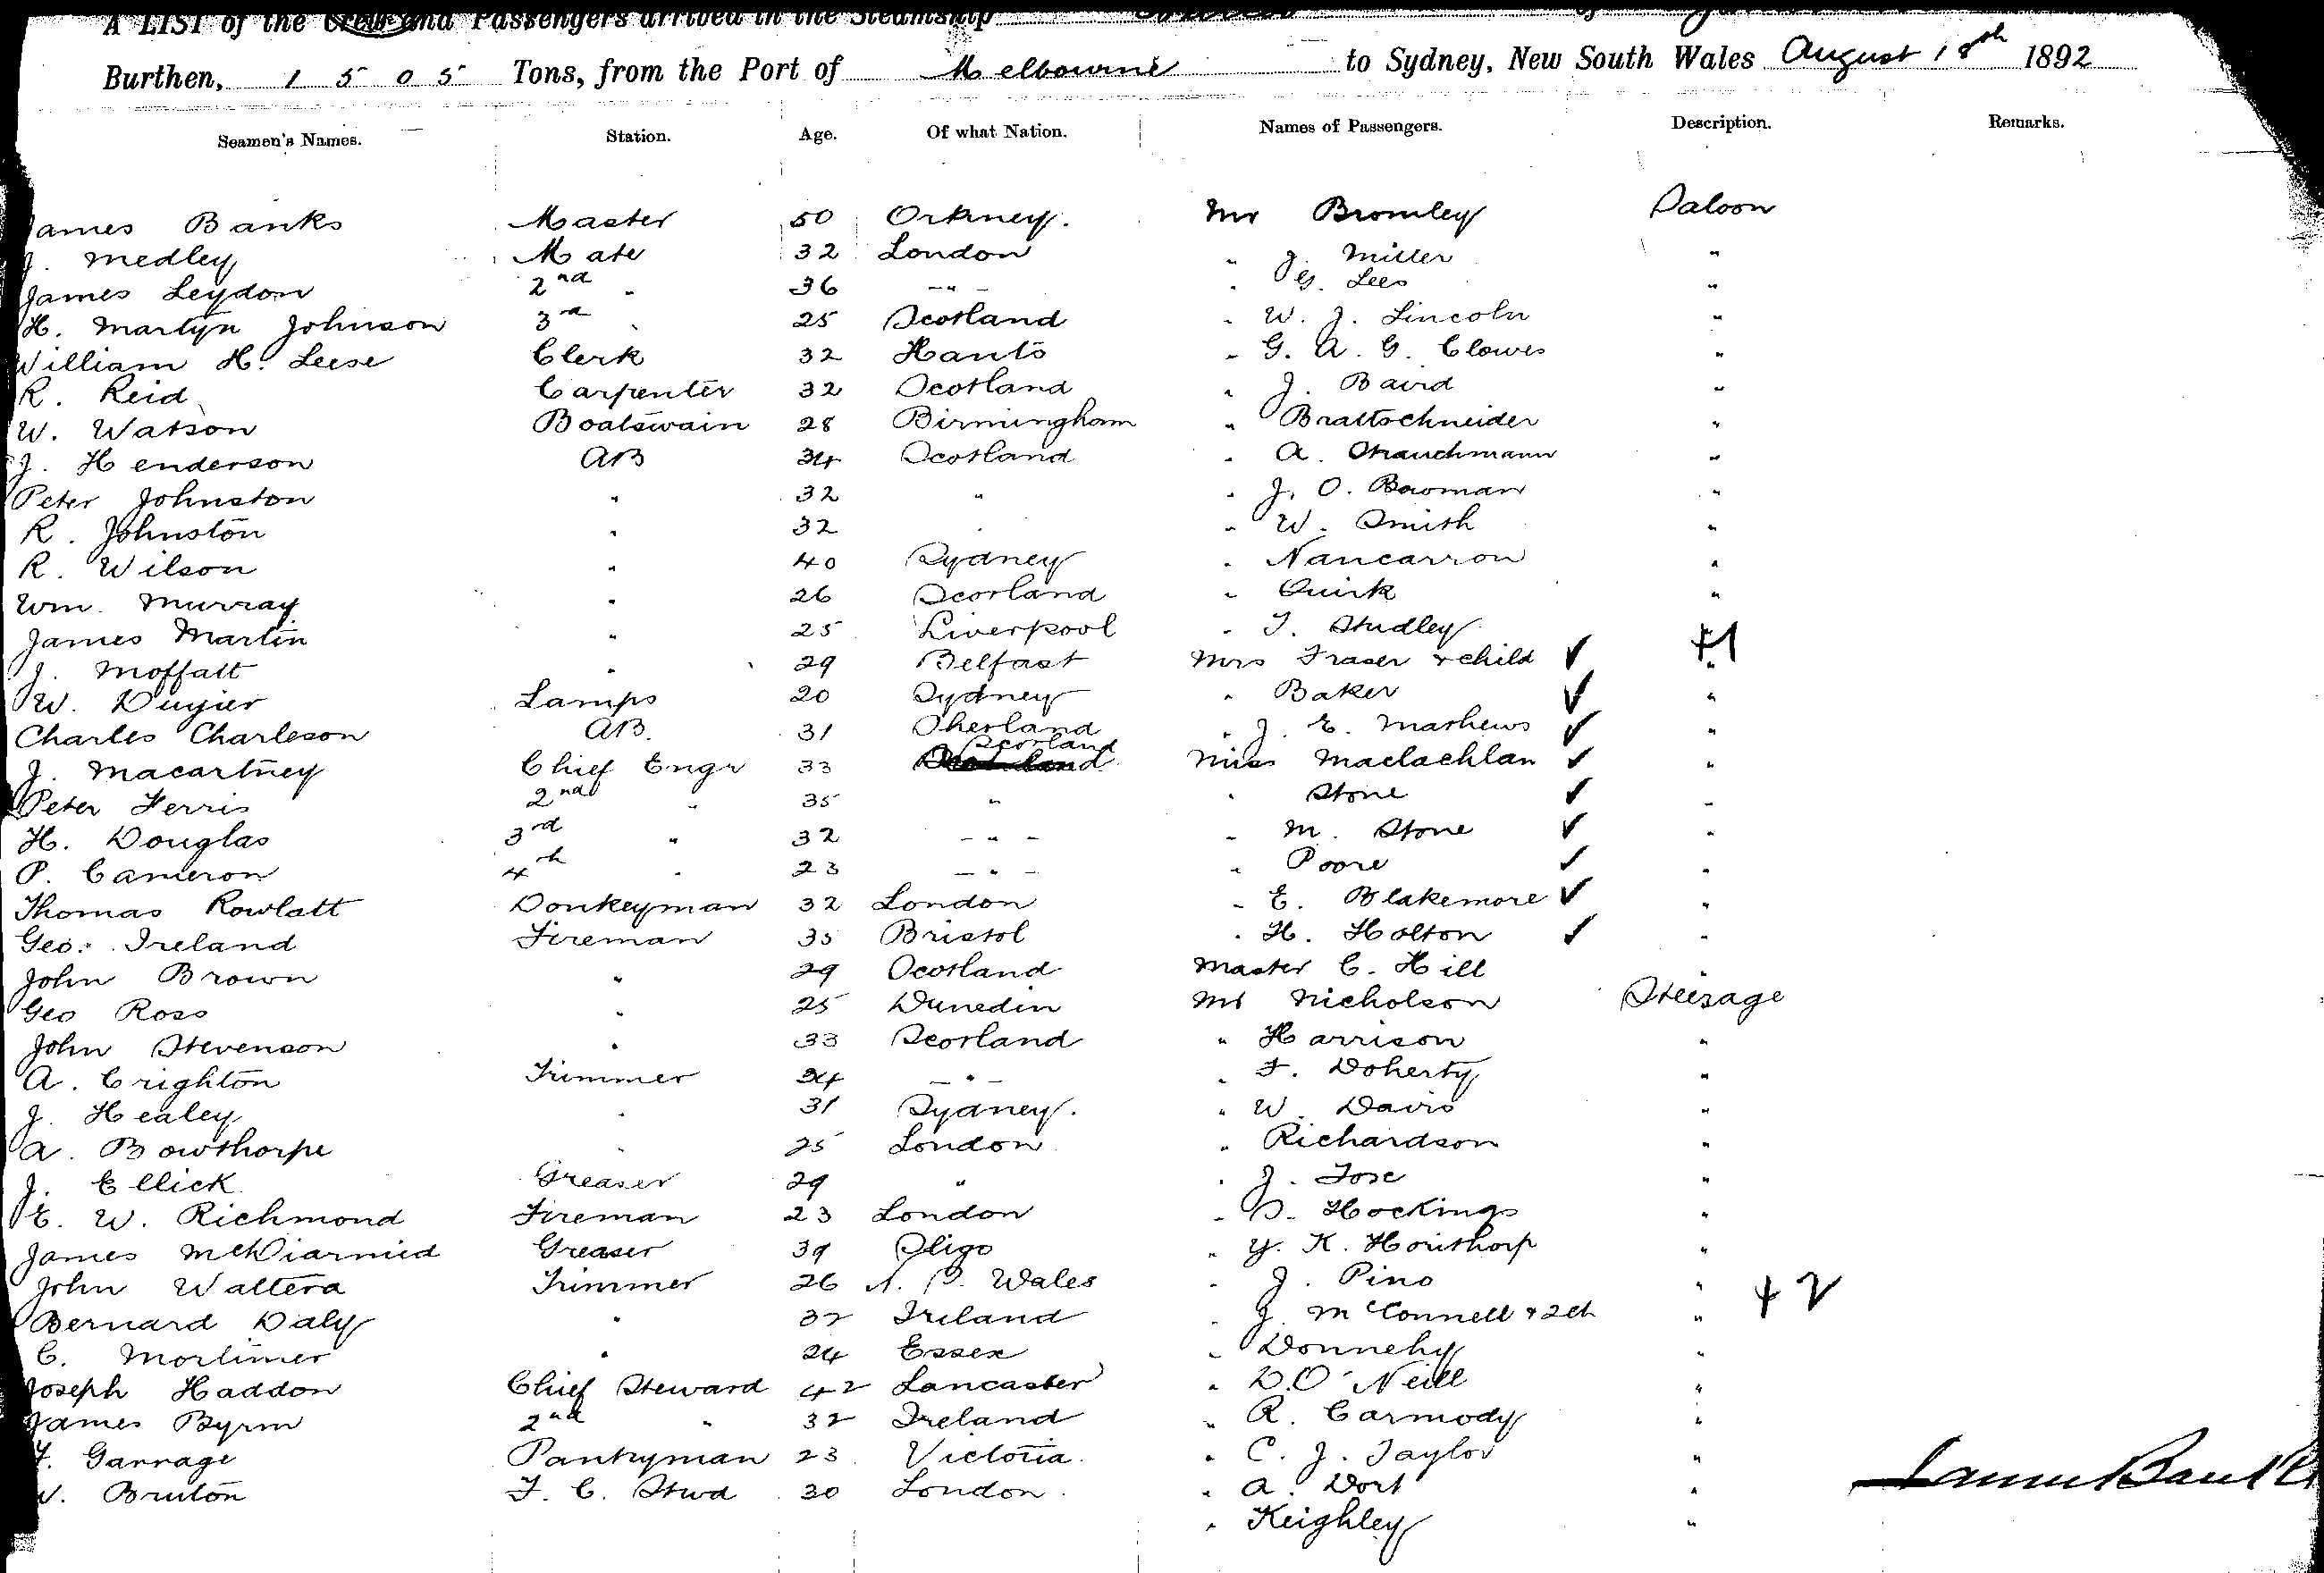 A LIST of the Crew and Passengers arrived in the Steamship of
Burthen, 1505 Tons, from the Port of Melbourne to Sydney, New South Wales August 18th 1892
Seamen's Names. Station. Age. Of what Nation. Names of Passengers. Description. Remarks.
James Banks Master 50 Orkney. Mr Bromley Saloon
J. Medley Mate 32 London " J. Miller "
James Leydon 2nd " 36 -"- " G. Lees "
H. Martyn Johnson 3rd " 25 Scotland " W. J. Lincoln "
William H. Leese Clerk 32 Hants " G. A. G. Clowes "
R. Reid Carpenter 32 Scotland " J. Baird "
W. Watson Boatswain 28 Birmingham " Brattschneider "
J. Henderson AB 34 Scotland " A. Strauchmann "
Peter Johnston " 32 " " J. O. Bowman "
R. Johnston " 32 " " W. Smith "
R. Wilson " 40 Sydney " Nancarron "
Wm. Murray " 26 Scotland " Quirk "
James Martin " 25 Liverpool " T. Studley +1
J. Moffatt " 29 Belfast Mrs Fraser & child ✓ "
W. Lamps 20 Sydney " Baker ✓ "
Charles Charleson AB. 31 Shetland " J. E. Mathews ✓ "
J. Macartney Chief Engr 33 Scotland Miss Maclachlan ✓ "
Peter Ferris 2nd " 35 " " Stone ✓ "
H. Douglas 3rd " 32 -"- " M. Stone ✓ "
P. Cameron 4th " 23 -"- " Poore ✓ "
Thomas Rowlatt Donkeyman 32 London " E. Blakemore ✓ "
Geo. Ireland Fireman 35 Bristol " H. Holton ✓ "
John Brown " 29 Scotland Master C. Hill "
Geo Ross " 25 Dunedin Mr Nicholson Steerage
John Stevenson " 33 Scotland " Harrison "
A. Crighton Trimmer 24 -"- " F. Doherty "
J. Healey " 31 Sydney. " W. Davis "
A. Bowthorpe " 25 London " Richardson "
J. Ellick Greaser 29 " " J. Jose "
E. W. Richmond Fireman 23 London " S. Hockings "
James McDiarmied Greaser 39 Sligo " Y. K. "
John Walters Trimmer 26 N. S. Wales " J. Pino "
Bernard Daly " 32 Ireland " J. McConnell & 2 ch " +2
C. Mortimer " 24 Essex " Donnehy "
Joseph Haddon Chief Steward 42 Lancaster " D. O'Neill "
James Byrm 2nd " 32 Ireland " R. Carmody "
F. Garrage Pantryman 23 Victoria. " C. J. Taylor "
W. Bruton F. C. Stwd 30 London. " A. Dort "
" Keighley "
James Banks